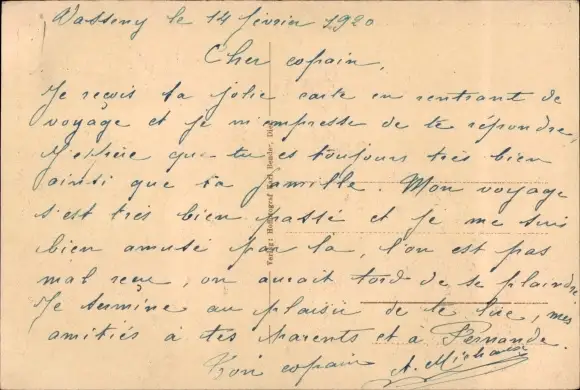 Wasseny le 14 février 1920
Cher copain,
Je reçois ta jolie carte en rentrant de
voyage et je m'empresse de te répondre,
J'espère que tu es toujours très bien
ainsi que ta famille. Mon voyage
s'est très bien passé et je me suis
bien amusé par la, l'on est pas
mal reçu, on aurait tord de se plaindre
Je termine au plaisir de te lire, mes
amitiés à tes parents et a Fernande.
Ton copain
Verlag: Hofphotograf Karl Bender,